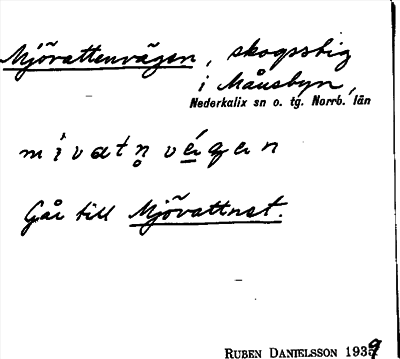 Mjövattenvägen, skogsstig
i Månsbyn,
Nederkalix sn o. tg. Norrb. län
mìvatn̥ vé̠gen
Går till Mjövattnet.
RUBEN DANIELSSON 1939